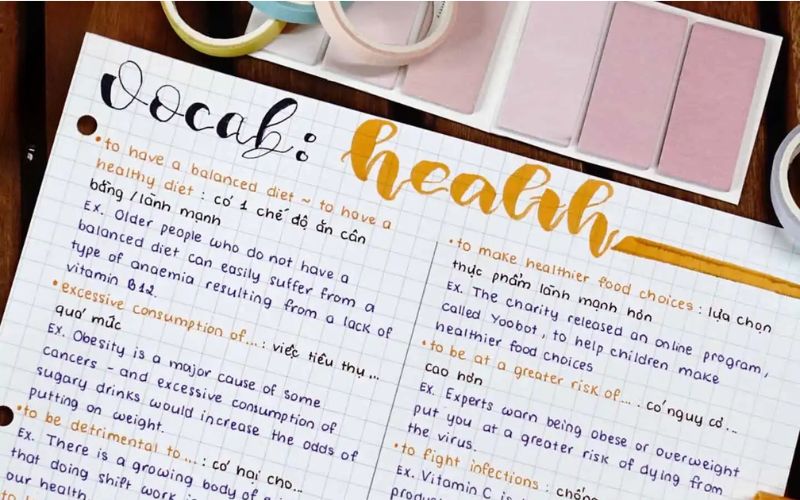 vocab: health
•to have a balanced diet ~ to have a
healthy diet : có 1 chế độ ăn cân
bằng / lành mạnh
Ex. Older people who do not have a
balanced diet can easily suffer from a
type of anaemia resulting from a lack of
vitamin B12.
•excessive consumption of... : việc tiêu thụ...
quá mức
Ex. Obesity is a major cause of some
cancers - and excessive consumption of
sugary drinks would increase the odds of
putting on weight.
•to be detrimental to... : có hại cho...
Ex. There is a growing body of
that doing shift work
our health
•to make healthier food choices : lựa chọn
thực phẩm lành mạnh hơn
Ex. The charity released an online program,
called Yoobot, to help children make
healthier food choices
•to be at a greater risk of... : có nguy cơ...
cao hơn
Ex. Experts warn being obese or overweight
put you at a greater risk of dying from
the virus.
•to fight infections : chống
Ex. Vitamin C is